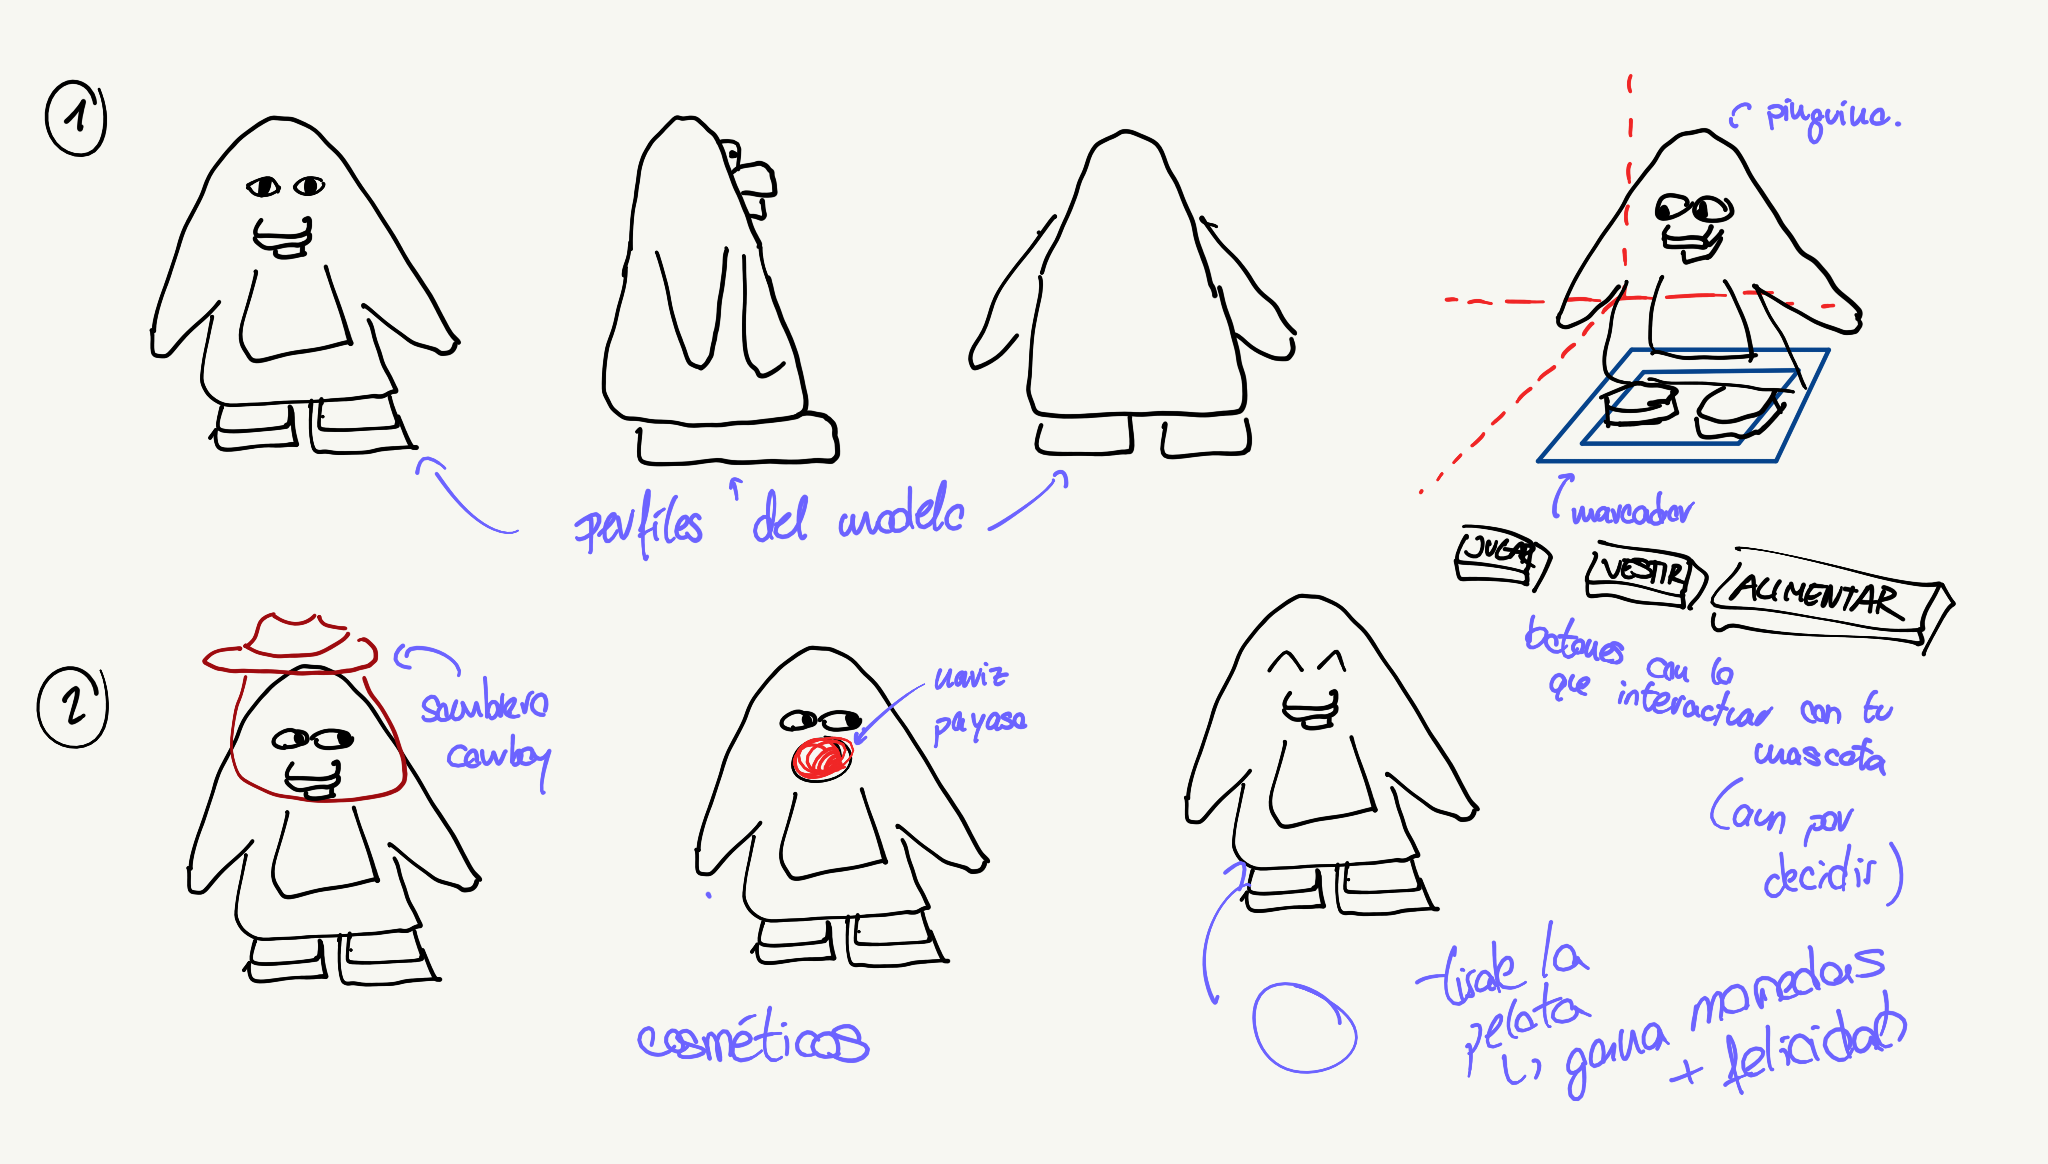 1
pinguino.
perfiles del modelo
marcador
JUGAR
VESTIR
ALIMENTAR
botones con lo
que interactuar con tu
mascota
(aun por
decidir)
2
sombrero
cowboy
nariz
payaso
cosméticos
tirale la
pelota
gana monedas
+ felicidad